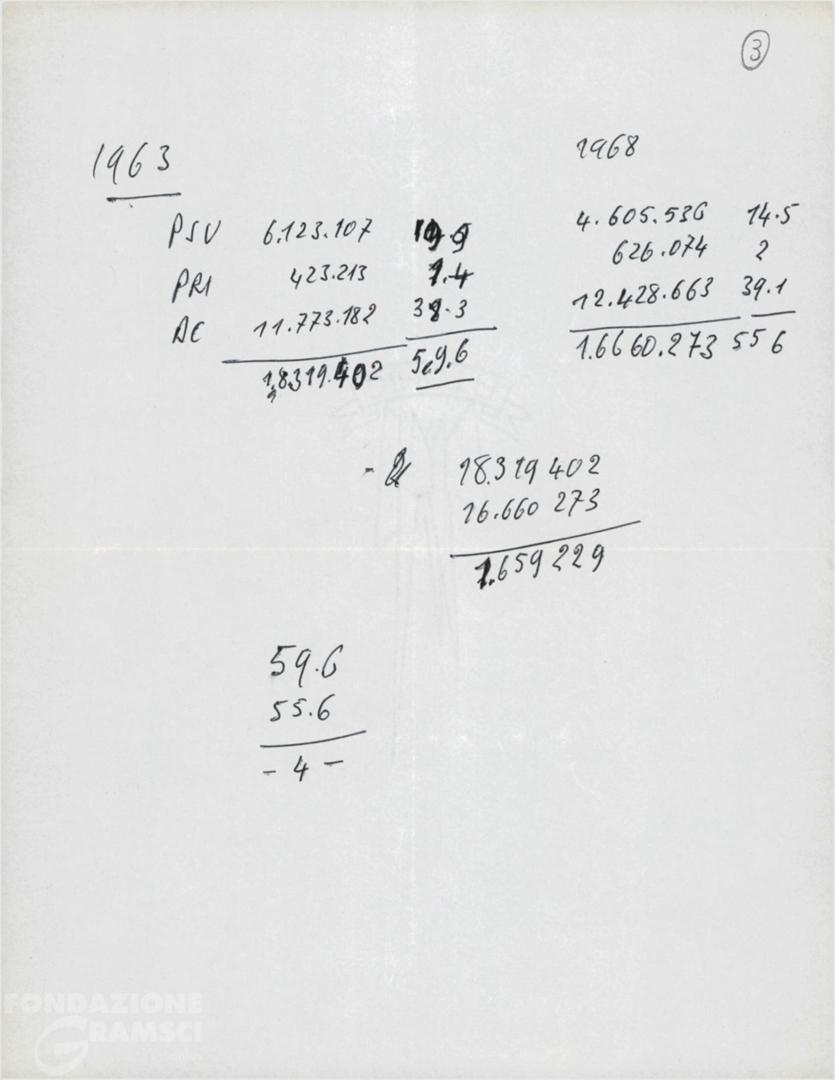 3
1963 1968
PSU 6.123.107 19.9 4.605.536 14.5
PRI 423.213 1.4 626.074 2
DC 11.773.182 38.3 12.428.663 39.1
18319.402 5.9.6 1.6660.273 55 6
18.319 402
16.660 273
1.659 229
59.6
55.6
- 4 -
FONDAZIONE
GRAMSCI